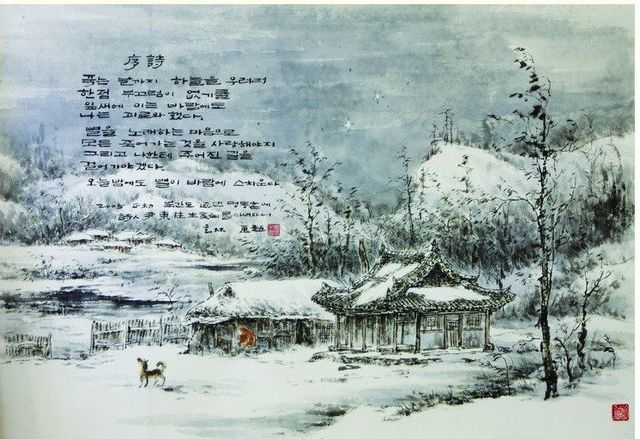 序詩
죽는 날까지 하늘을 우러러
한점 부끄럼이 없기를
잎새에 이는 바람에도
나는 괴로와 했다.
별을 노래하는 마음으로
모든 죽어가는 것을 사랑해야지
그리고 나한테 주어진 길을
걸어가야겠다
오늘밤에도 별이 바람에 스치운다
북간도 명동촌에
詩人 尹東柱 生家를